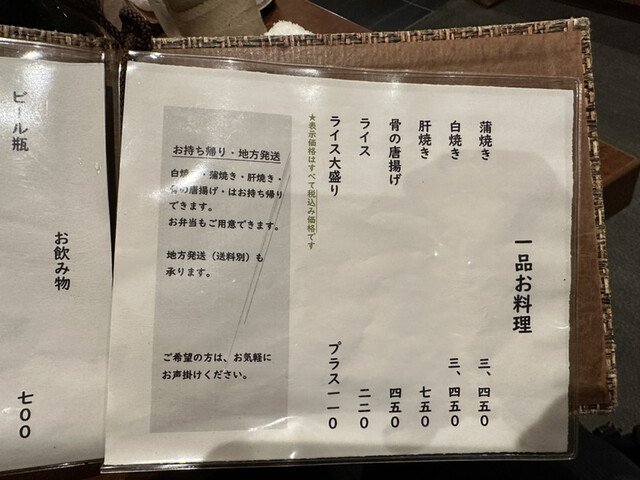 一品お料理
蒲焼き 三、四五〇
白焼き 三、四五〇
肝焼き 七五〇
骨の唐揚げ 四五〇
ライス 二二〇
ライス大盛り プラス一一〇
★表示価格はすべて税込み価格です
お持ち帰り・地方発送
白焼き・蒲焼き・肝焼き・
骨の唐揚げ・はお持ち帰り
できます。
お弁当もご用意できます。
地方発送（送料別）も
承ります。
ご希望の方は、お気軽に
お声掛けください。
お飲み物
ビール瓶 七〇〇